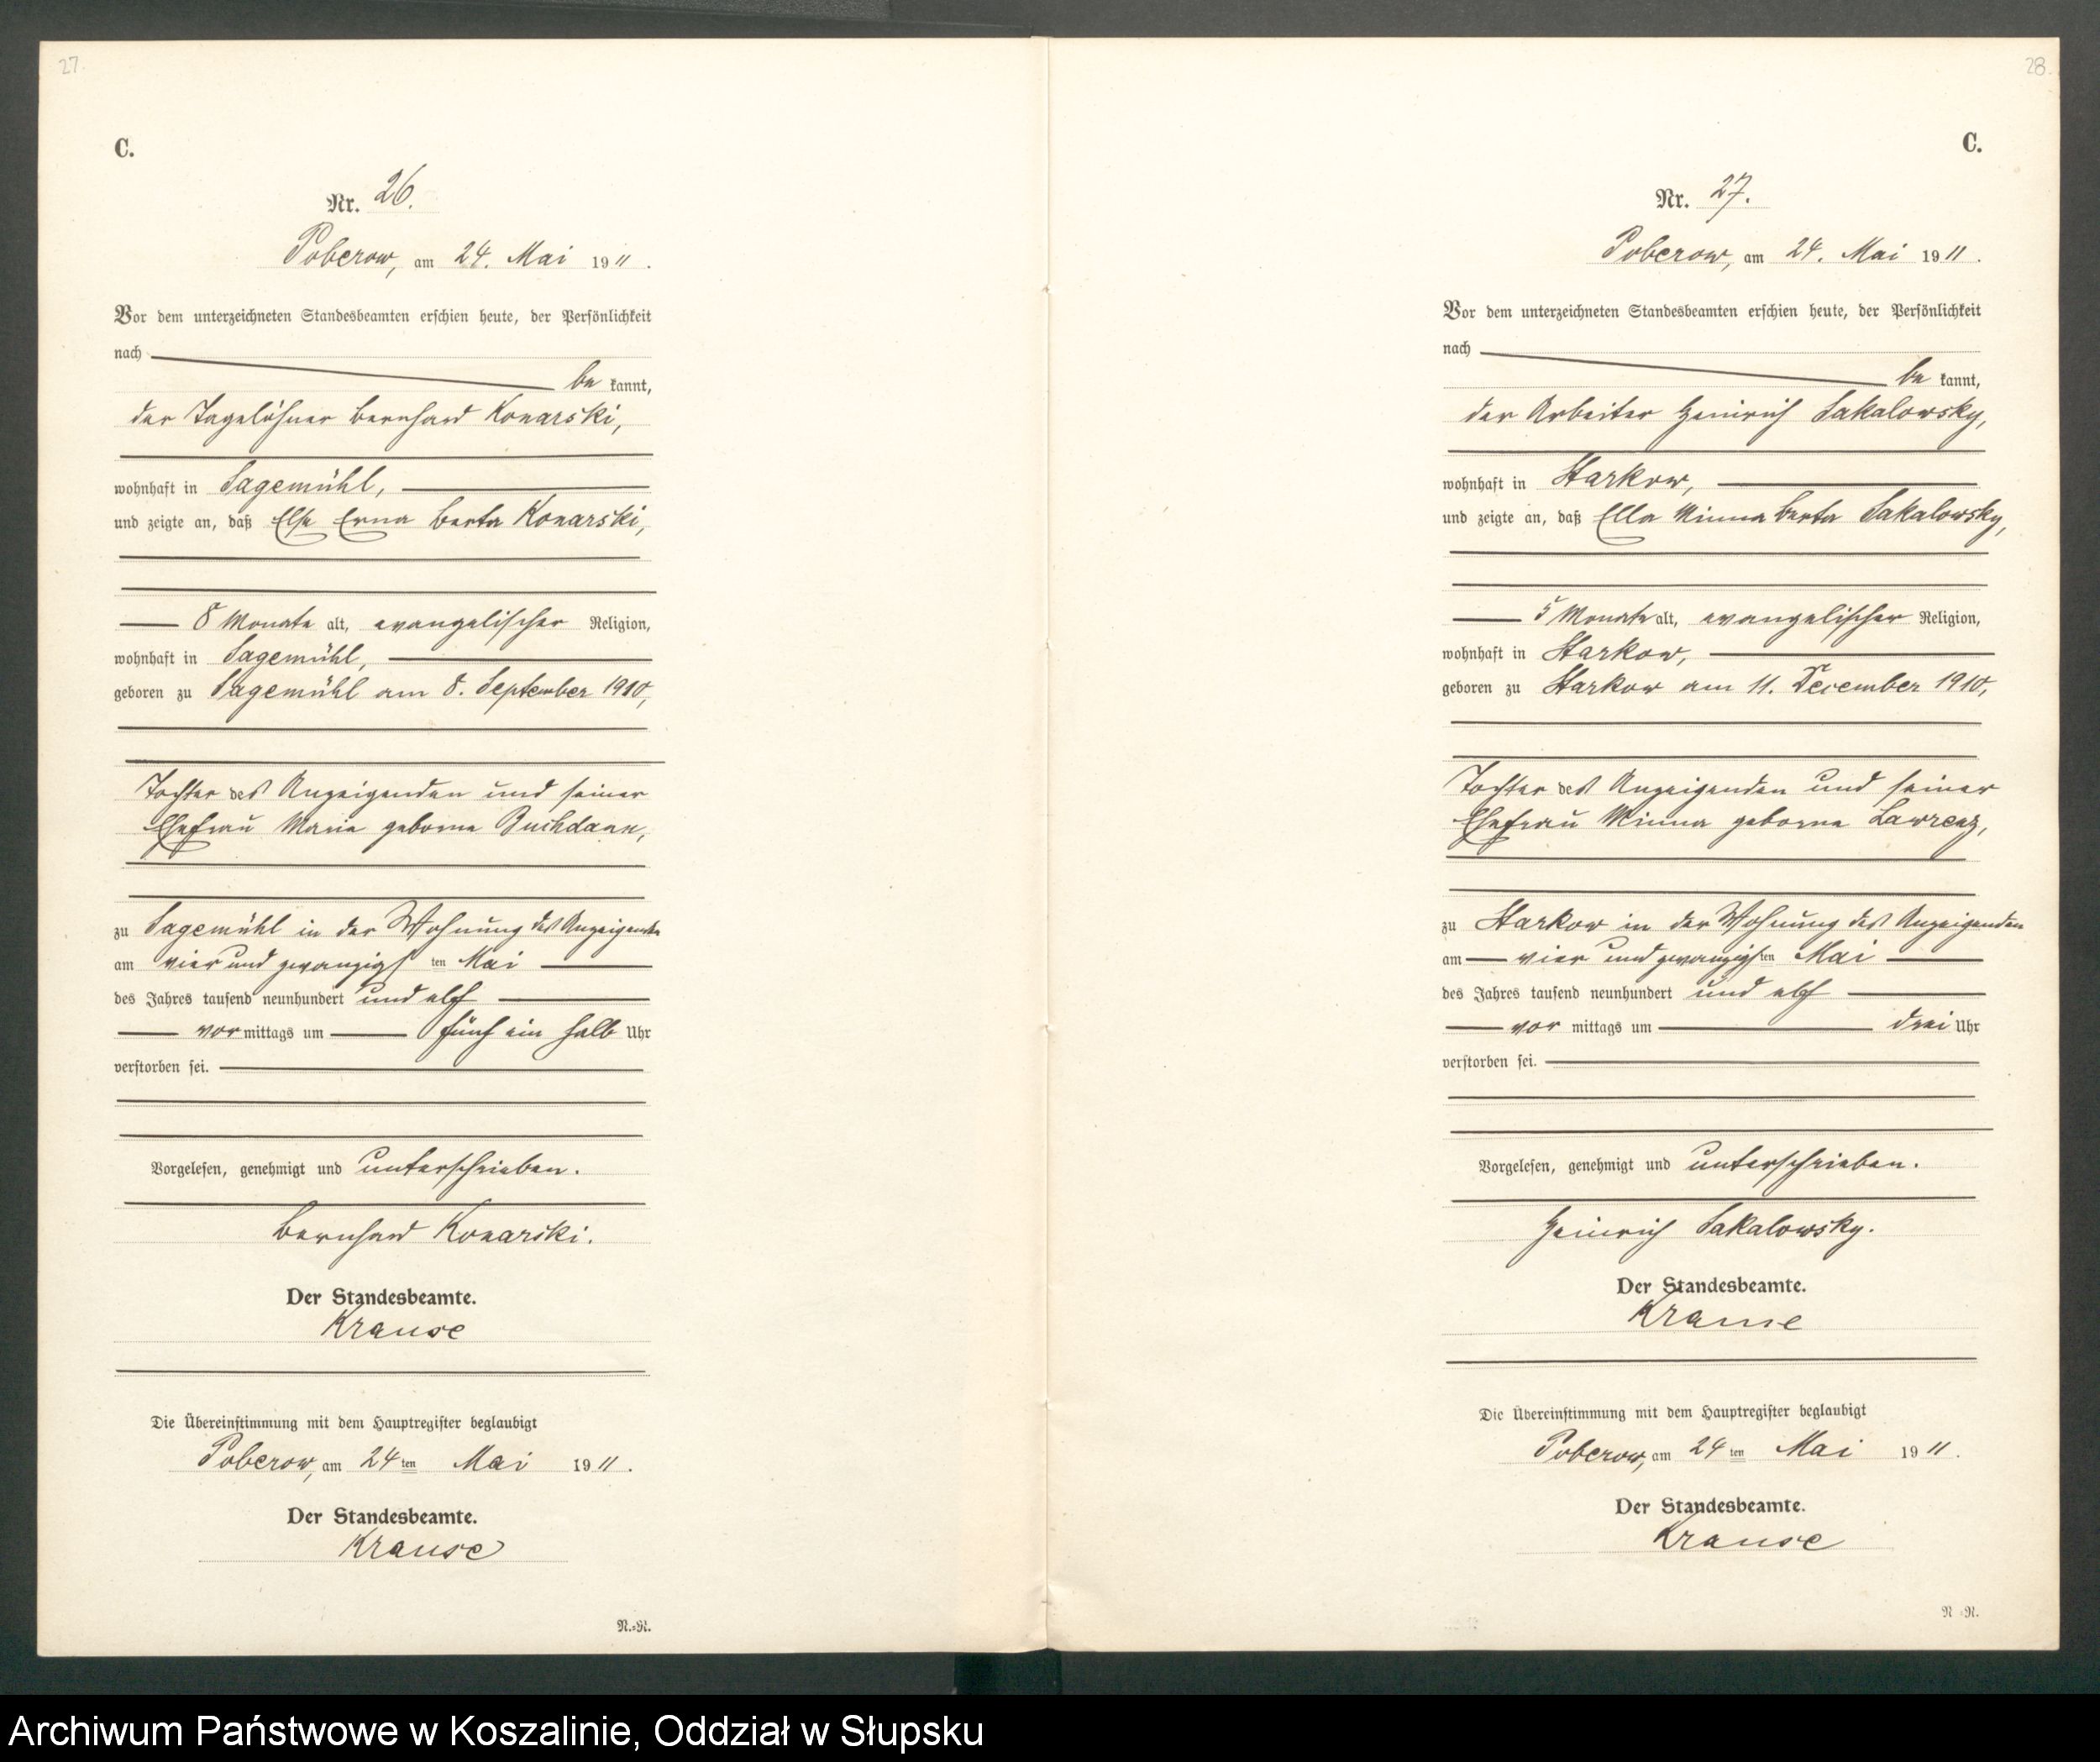 27.
C.
Nr. 26.
Poberow, am 24. Mai 1911.
Vor dem unterzeichneten Standesbeamten erschien heute, der Persönlichkeit
nach
be kannt,
der Tagelöhner Bernhard Konarski,
wohnhaft in Sagemühl,
und zeigte an, daß Else Erna Berta Konarski,
8 Monate alt, evangelischer Religion,
wohnhaft in Sagemühl,
geboren zu Sagemühl am 8. September 1910,
Tochter des Anzeigenden und seiner
Ehefrau Maria geborne
zu Sagemühl in der Wohnung des Anzeigenden
am vier und zwanzigsten Mai
des Jahres tausend neunhundert und elf
vormittags um fünf ein halb Uhr
verstorben sei.
Vorgelesen, genehmigt und unterschrieben.
Bernhard Konarski.
Der Standesbeamte.
Krause
Die Übereinstimmung mit dem Hauptregister beglaubigt
Poberow, am 24ten Mai 1911.
Der Standesbeamte.
Krause
N.=N.
28.
C.
Nr. 27.
Poberow, am 24. Mai 1911.
Vor dem unterzeichneten Standesbeamten erschien heute, der Persönlichkeit
nach
be kannt,
der Arbeiter Heinrich Sakalowsky,
wohnhaft in Starkow,
und zeigte an, daß Ella Minna Berta Sakalowsky,
5 Monate alt, evangelischer Religion,
wohnhaft in Starkow,
geboren zu Starkow am 11. December 1910,
Tochter des Anzeigenden und seiner
Ehefrau Minna geborne Lawrenz,
zu Starkow in der Wohnung des Anzeigenden
am vier und zwanzigsten Mai
des Jahres tausend neunhundert und elf
vor mittags um drei Uhr
verstorben sei.
Vorgelesen, genehmigt und unterschrieben.
Heinrich Sakalowsky.
Der Standesbeamte.
Krause
Die Übereinstimmung mit dem Hauptregister beglaubigt
Poberow, am 24ten Mai 1911.
Der Standesbeamte.
Krause
N.=N.
Archiwum Państwowe w Koszalinie, Oddział w Słupsku